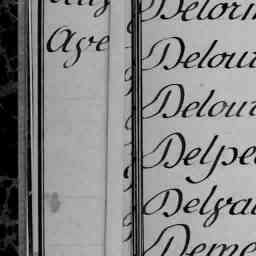 Aye
Delori
Delou
Delou
Delpe
Delva
Deme